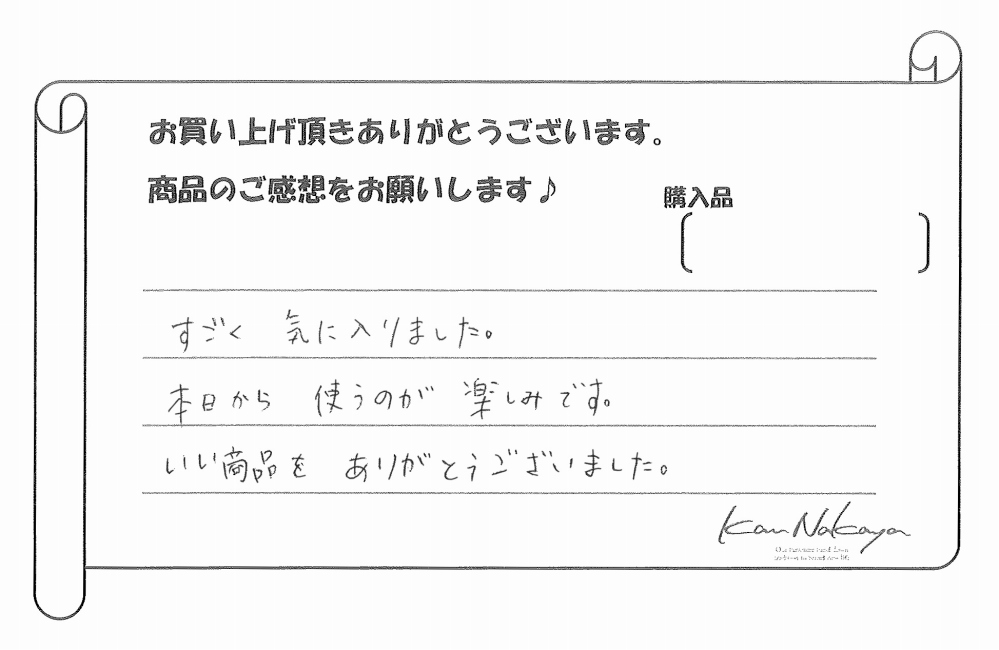 お買い上げ頂きありがとうございます。
商品のご感想をお願いします♪
購入品
すごく 気に入りました。
本日から 使うのが 楽しみです。
いい商品を ありがとうございました。
Kan Nakaya